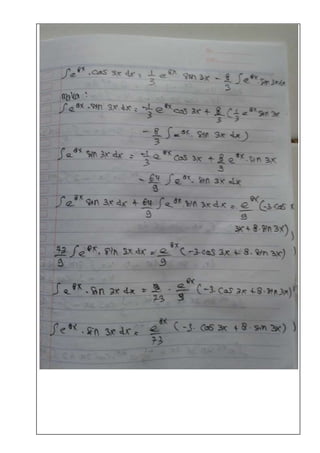 ∫e^8x . cos 3x dx = 1/3 e^8x sin 3x - 8/3 ∫e^8x sin 3x dx
maka :
∫e^8x . sin 3x dx = -1/3 e^8x cos 3x + 8/3 (1/3 e^8x sin 3x
- 8/3 ∫e^8x . sin 3x dx)
∫e^8x sin 3x dx = -1/3 e^8x cos 3x + 8/9 e^8x . sin 3x
- 64/9 ∫e^8x . sin 3x dx
∫e^8x sin 3x dx + 64/9 ∫e^8x sin 3x dx = e^8x/9 (-3 cos
3x + 8 . sin 3x)
73/9 ∫e^8x . sin 3x dx = e^8x/9 (-3 . cos 3x + 8 . sin 3x)
∫e^8x . sin 3x dx = 9/73 . e^8x/9 (-3 . cos 3x + 8 . sin 3x)
∫e^8x . sin 3x dx = e^8x/73 (-3 . cos 3x + 8 . sin 3x)